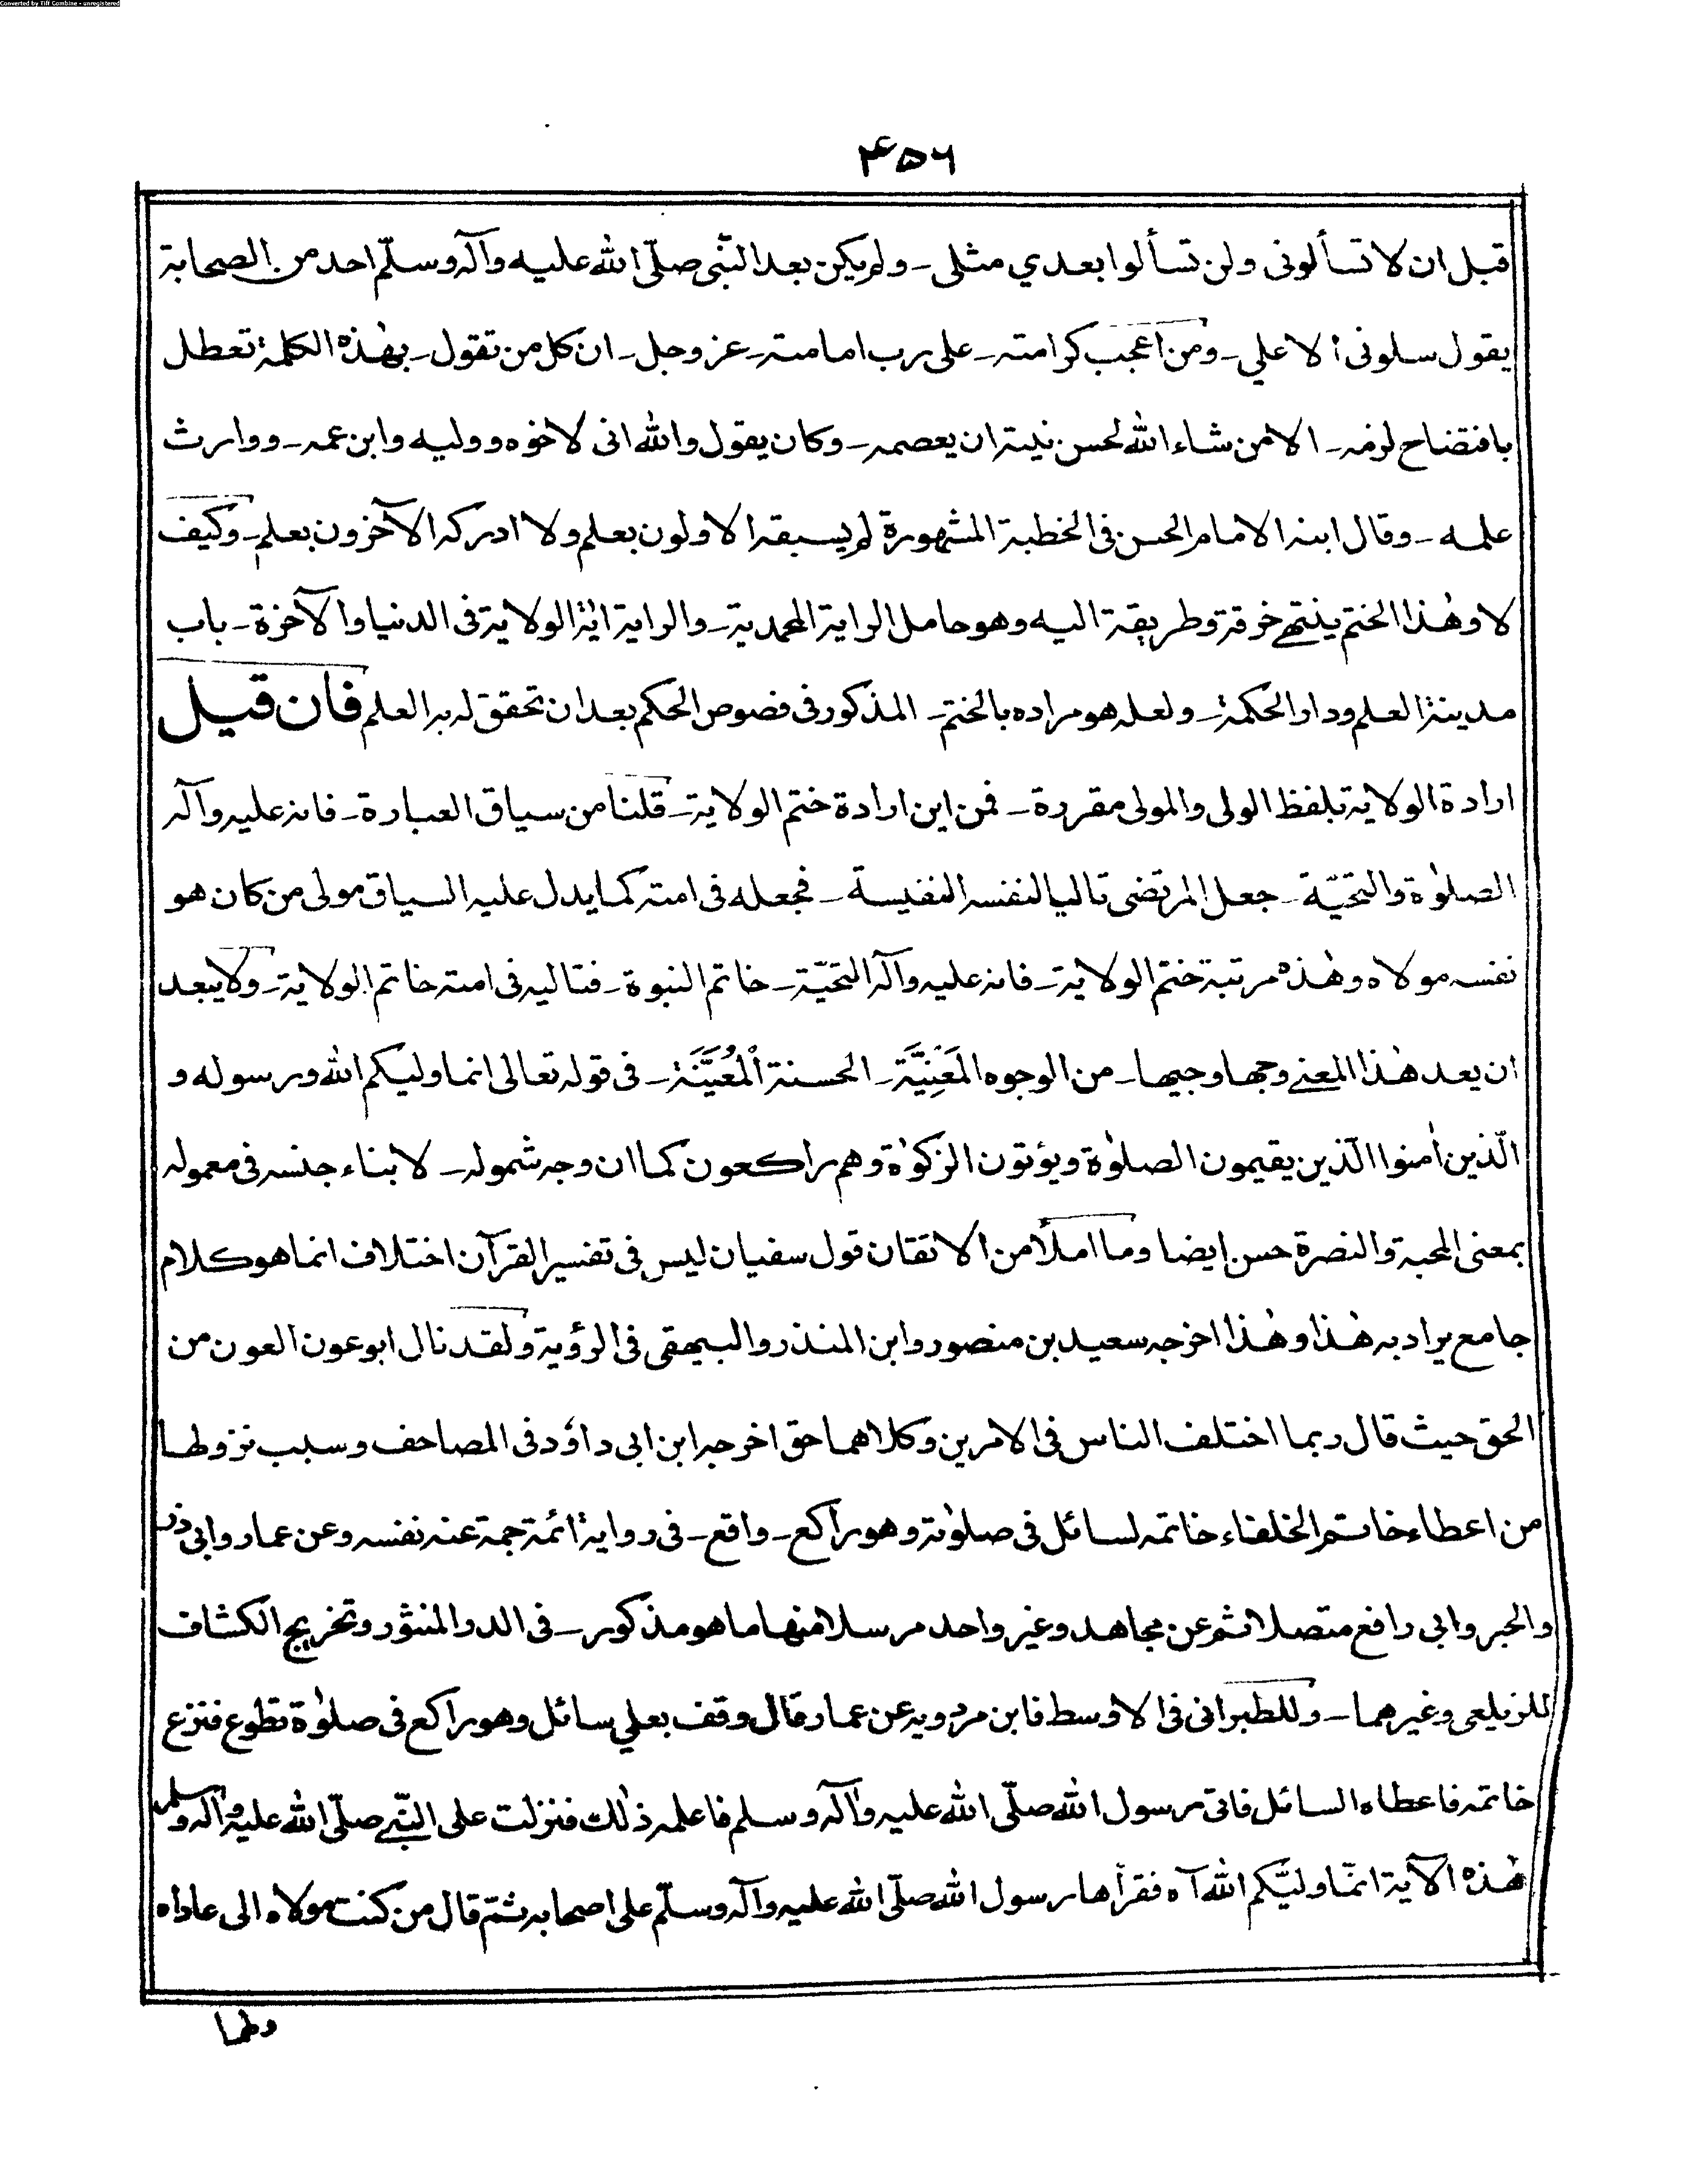 Converted by Tiff Combine - unregistered
۴۵۶
قبل ان لا تسألونى ولن تسألوا بعدي مثلى ـ ولم يكن بعد النّبى صلّى الله عليه وآله وسلّم احد من الصحابة
يقول سلونى الا علي ـ ومن اعجب كرامته ـ على رب امامته ـ عز وجل ـ ان كل من تقول ـ بهٰذه الكلمة تعطل
بافتضاح لزمه ـ الا من شاء الله لحسن نيته ان يعصمه ـ وكان يقول والله انى لاخوه ووليه وابن عمه ـ ووارث
علمه ـ وقال ابنه الامام الحسن فى الخطبة المشهورة لم يسبقه الاولون بعلم ولا ادركه الآخرون بعلم ـ وكيف
لا وهٰذا الختم ينتهے خرقة وطريقة اليه وهو حامل الراية المحمدية ـ والراية اية الولاية فى الدنيا والآخرة ـ باب
مدينة العلم ودار الحكمة ـ ولعله هو مراده بالختم ـ المذكور فى فصوص الحكم بعد ان تحقق له به العلم فان قيل
ارادة الولاية بلفظ الولى والمولى مقررة ـ فمن اين ارادة ختم الولاية ـ قلنا من سياق العبارة ـ فانه عليه وآله
الصلوٰة والتحيّة ـ جعل المرتضى تاليا لنفسه النفيسة ـ فجعله فى امته كما يدل عليه السياق مولى من كان هو
نفسه مولاه وهٰذه مرتبة ختم الولاية ـ فانه عليه وآله التحيّة ـ خاتم النبوة ـ فتاليه فى امته خاتم الولاية ـ ولا يبعد
ان يعد هٰذا المعنے وجها وجيها ـ من الوجوه المَعْنِيَّة ـ الحسنة الْمُعَيَّنَة ـ فى قوله تعالى انما وليكم الله ورسوله و
الّذين اٰمنوا الّذين يقيمون الصلوٰة ويؤتون الزكوٰة وهم راكعون كما ان وجه شموله ـ لابناء جنسه فى معموله
بمعنى المحبة والنصرة حسن ايضا وما املأ من الاتقان قول سفيان ليس فى تفسير القرآن اختلاف انما هو كلام
جامع يراد به هٰذا وهٰذا اخرجه سعيد بن منصور وابن المنذر والبيهقى فى الرؤية ولقد نال ابو عون العون من
الحق حيث قال ربما اختلف الناس فى الامرين وكلاهما حق اخرجه ابن ابى داؤد فى المصاحف وسبب نزولها
من اعطاء خاتم الخلفاء خاتمه لسائل فى صلوٰته وهو راكع ـ واقع ـ فى رواية ائمة جمة عنه نفسه وعن عمار وابى ذر
والحبر وابى رافع متصلا ثم عن مجاهد وغير واحد مرسلا منها ما هو مذكور ـ فى الدر المنثور وتخريج الكشاف
للزيلعى وغيرهما ـ وللطبرانى فى الاوسط فابن مردويه عن عمار قال وقف بعلي سائل وهو راكع فى صلوٰة تطوع فنزع
خاتمه فاعطاه السائل فاتى رسول الله صلّى الله عليه واٰله وسلم فاعلمه ذٰلك فنزلت على النّبے صلّى الله عليه واٰله وسلم
هٰذه الآية انمّا وليّكم الله آه فقرأها رسول الله صلّى الله عليه وآله وسلّم على اصحابه ثمّ قال من كنت مولاه الى عاداه
ولهما